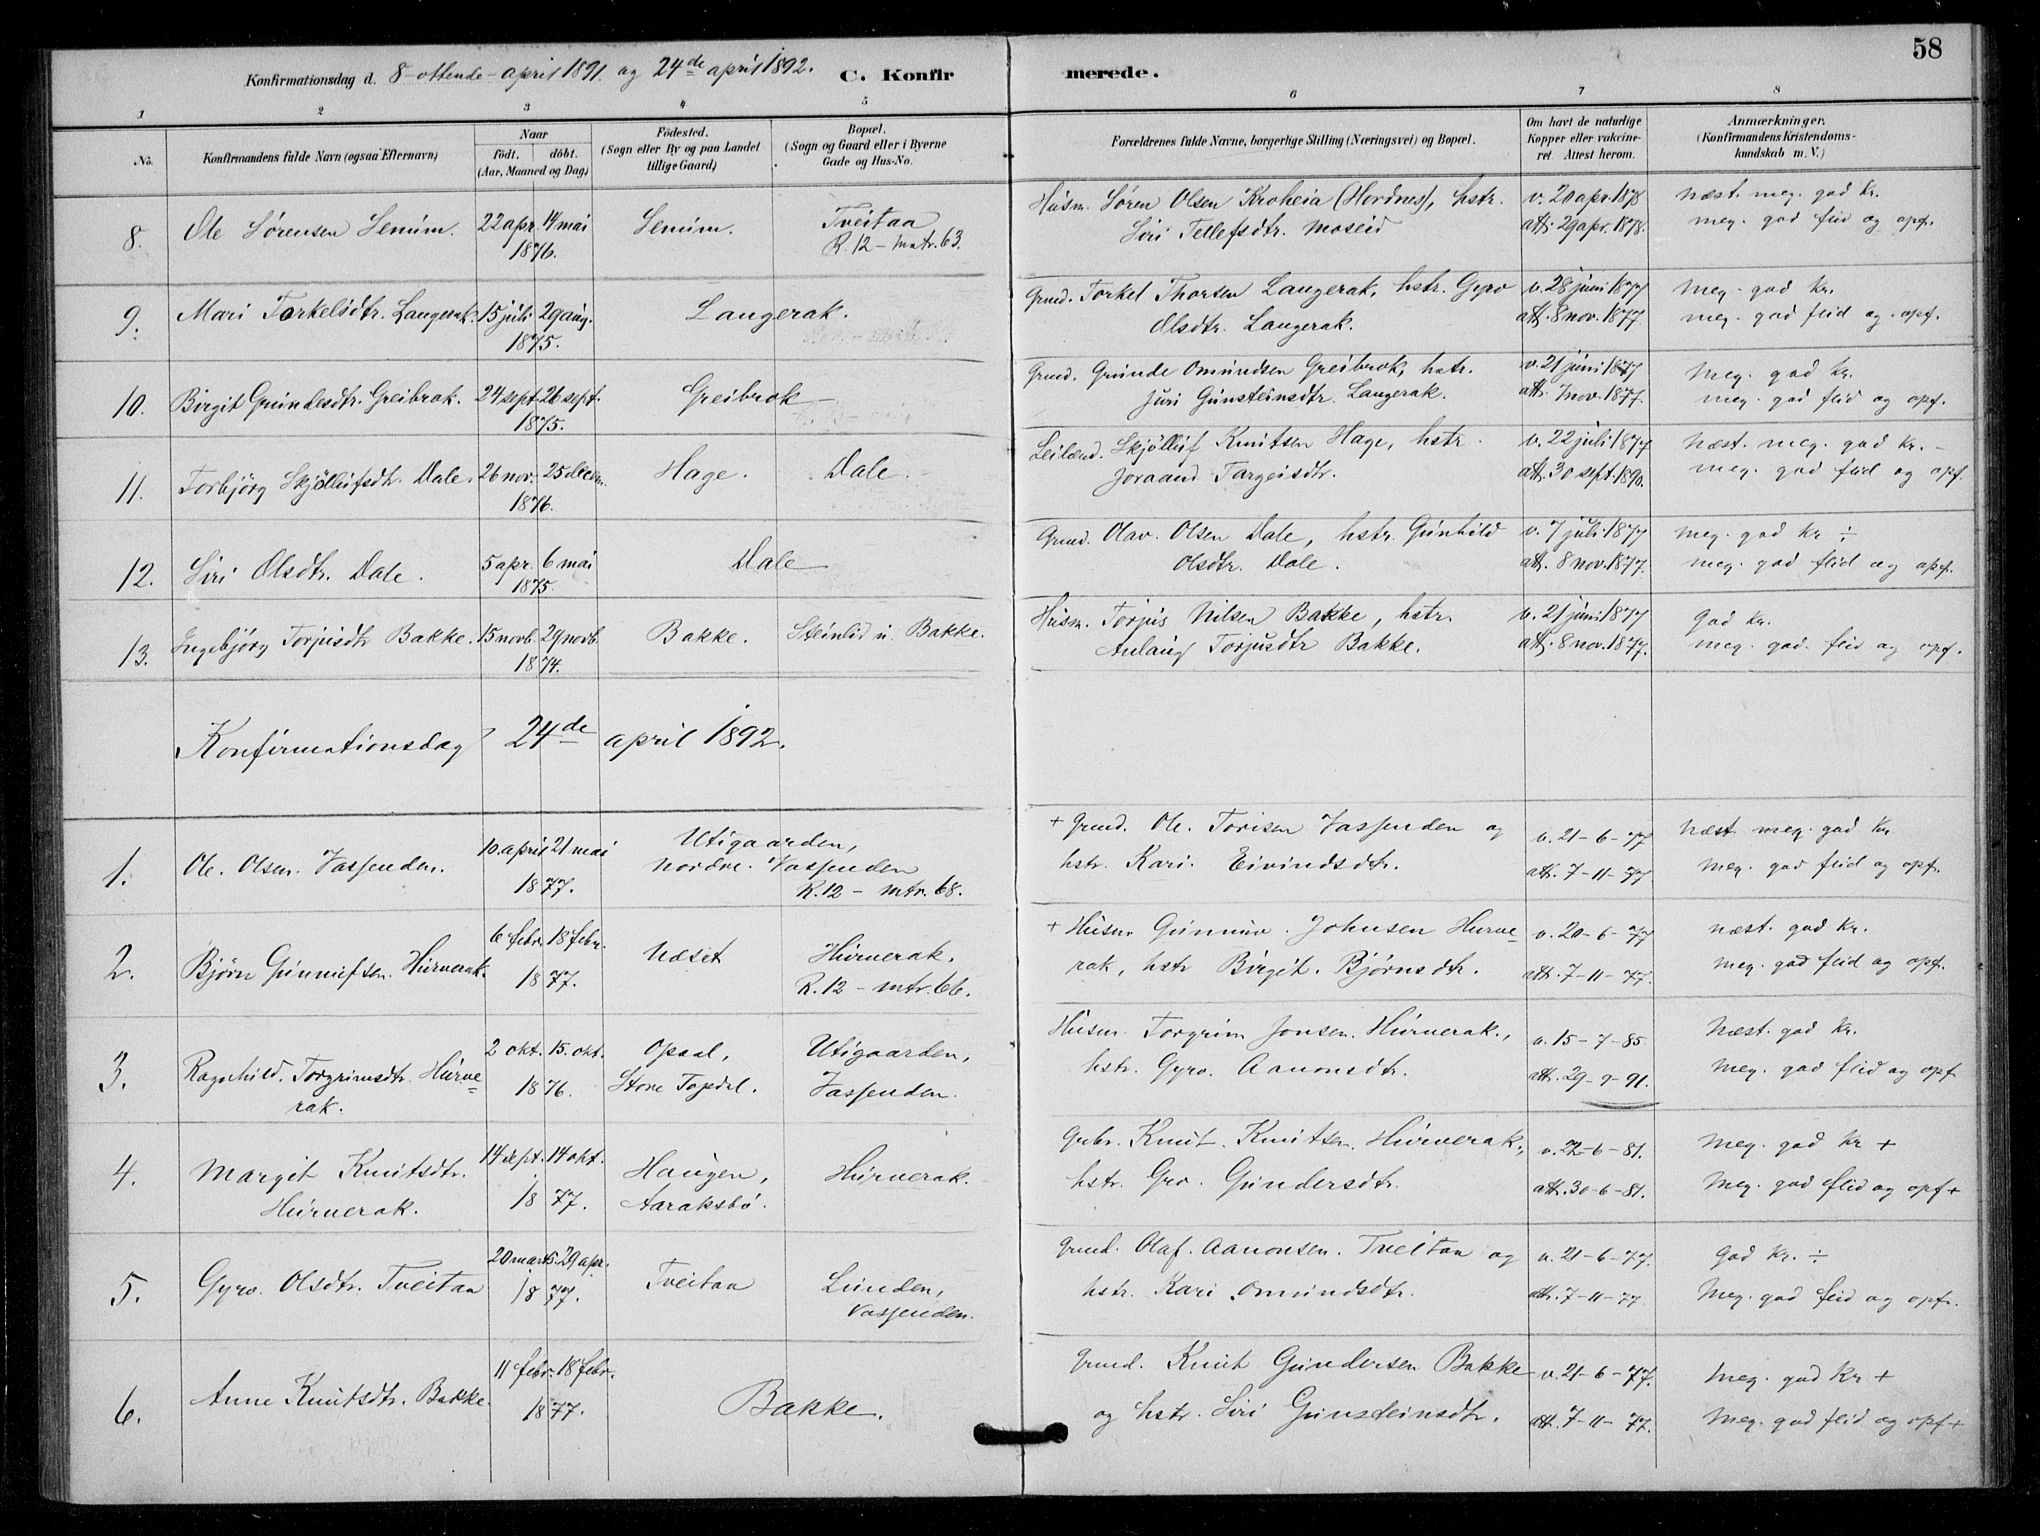 58
Konfirmationsdag d. 8-ottende-april 1891. og 24de april 1892. C. Konfirmerede.
1 2 3 4 5 6 7 8
No.
Konfirmandens fulde Navn (ogsaa Efternavn)
Naar
födt. döbt.
(Aar, Maaned og Dag)
Födested.
(Sogn eller By og paa Landet
tillige Gaard)
Bopæl.
(Sogn og Gaard eller i Byerne
Gade og Hus-No.
Forældrenes fulde Navne, borgerlige Stilling (Næringsvei) og Bopæl.
Om havt de naturlige
Kopper eller vakcine-
ret. Attest herom.
Anmærkninger.
(Konfirmandens Kristendoms-
kundskab m. V.)
8. Ole Sørensen Senum. 22 apr. 14 mai Senum. Tveitaa
1876. R. 12 - matr. 63.
Husm. Søren Olsen Kroheia (Hordnes), hstr. v. 20 apr. 1878 Næst. meg. god kr.
Siri Tellefsdtr. Moseid att. 29 apr. 1878. meg. god flid og opf.
9. Mari Torkelsdtr. Langerak. 15 juli 29 aug. Langerak.
1875.
Grund. Torkel Thorsen Langerak, hstr. Gyro v. 28 juni 1877 Meg. god kr.
Olsdtr. Langerak. att. 8 nov. 1877. meg. god flid og opf.
10. Birgit Grundesdtr. Greibrok. 24 sept. 26 sept. Greibrok
1875.
Grund. Grunde Omundsen Greibrok, hstr. v. 21 juni 1877 Meg. god kr.
Juri Gunsteinsdtr. Langerak. att. 7 nov. 1877. meg. god flid og opf.
11. Torbjörg Skjöllufsdtr. Dale. 26 nov. 25 decem. Hage. Dale.
1876.
Leilænd. Skjölluf Knutsen Hage, hstr. v. 22 juli 1877 Næst. meg. god kr. -
Joraand Targeisdtr. att. 30 sept. 1890. meg. god flid og opf.
12. Siri Olsdtr. Dale. 5 apr. 6 mai Dale
1875.
Grund. Olav. Olsen Dale, hstr. Gunhild v. 7 juli 1877 meg. god kr ÷
Olsdtr. Dale. att. 8 nov. 1877. meg. god flid og opf.
13. Ingebjörg Torjusdtr Bakke. 15 novb. 29 novb. Bakke. Steinlid u. Bakke.
1874.
Husm. Torjus Nilsen Bakke, hstr. v. 21 juni 1877 God kr.
Aulaug Torjusdtr Bakke. att. 8 nov. 1877. meg. god flid og opf.
Konfirmationsdag 24de april 1892.
1. Ole. Olsen. Vassenden. 10. april 21 mai Utigaarden,
nordre. Vassenden
1877. R. 12 - mtr. 68.
+ Grund. Ole. Torisen Vassenden og v. 21-6-77 Næst. meg. god kr
hstr. Kari. Eivindsdtr. att. 7-11-77 Meg. god flid og opf.
2. Bjørn Gunnufsen. Hurverak. 6 febr. 18 febr. Næset Hurverak.
1877. R. 12 - mtr. 66.
+ Husm. Gunnuv. Johnsen Hurve- v. 20-6-77 Næst. god kr.
rak, hstr Birgit. Bjørnsdtr. att. 7-11-77. Meg. god flid og opf.
3. Ragnhild. Torgrimsdtr. Hurve= 2 okt. 15. okt. Opaal, Utigaarden,
rak. 1876. Store Topdal. Vassenden.
Husm. Torgrim Jonsen. Hurverak., v. 15-7-85 Næst. god kr.
hstr. Gyro. Aanonsdtr. att. 29-9-91. Meg. god flid og opf
4. Margit Knutsdtr. 14 sept. 14 okt. Haugen, Hurverak.
Hurverak. 1877. Aaraksbø.
Gebr. Knut. Knutsen. Hurverak., v. 22-6-81. Meg. god kr +
hstr. Gro. Gundersdtr. att. 30-6-81. Meg. god flid og opf +
5. Gyro. Olsdtr. Tveitaa 20 marts. 29 apr. Tveitaa Lunden,
1877. Vassenden.
Grund. Olaf. Aanonsen. Tveitaa og v. 21-6-77. God kr. ÷
hstr. Kari Omundsdtr. att. 7-11-77 Meg. god flid og opf.
6. Anne Knutsdtr. Bakke. 11 febr. 18 febr. Bakke.
1877.
Grund. Knut Gundersen Bakke v. 21-6-77. Meg. god kr +
og hstr. Siri Gunsteinsdtr. att. 7-11-77. Meg. god flid og opf +